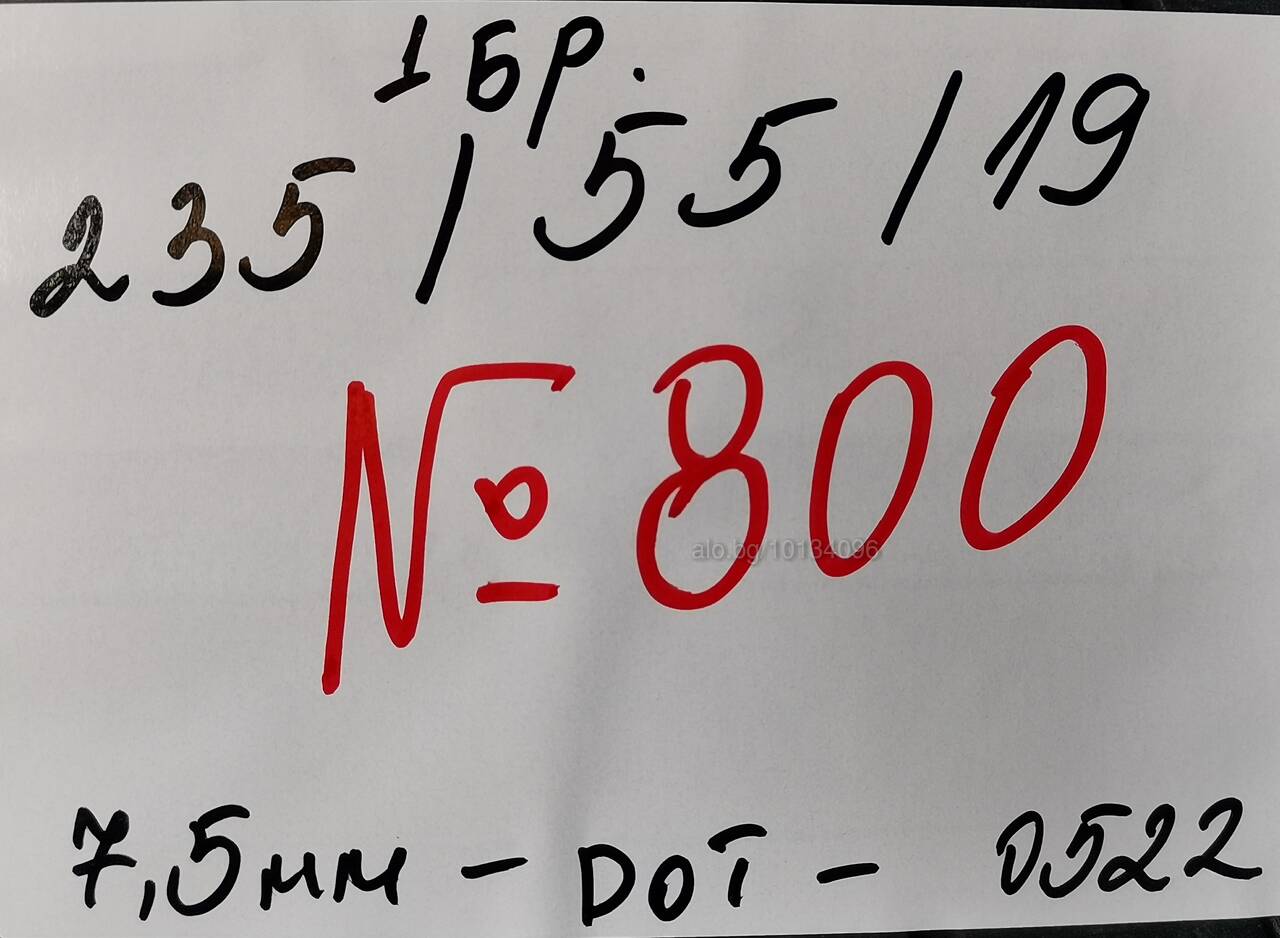 1 бр.
235 / 55 / 19
№ 800
alo.bg/10134096
7,5мм - DOT - 0522